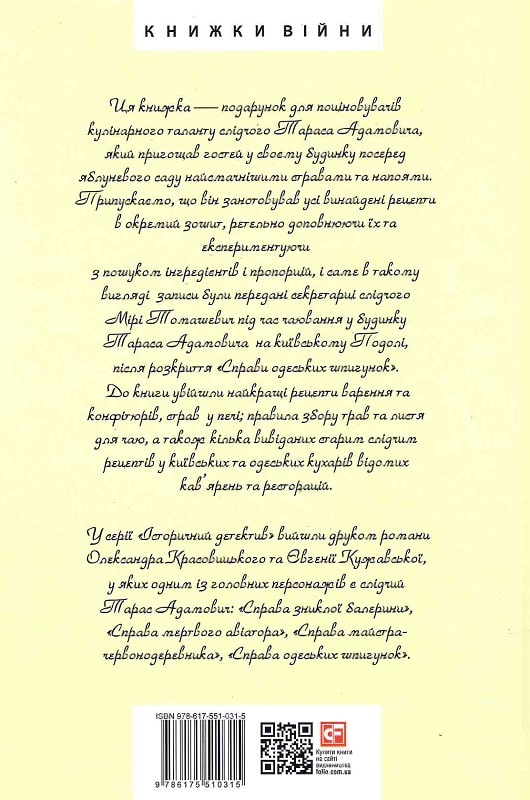 КНИЖКИ ВІЙНИ
Ця книжка — подарунок для поціновувачів
кулінарного таланту слідчого Тараса Адамовича,
який пригощав гостей у своєму будинку посеред
яблуневого саду найсмачнішими стравами та напоями.
Припускаємо, що він занотовував усі винайдені рецепти
в окремий зошит, ретельно доповнюючи їх та
експериментуючи
з пошуком інгредієнтів і пропорцій, і саме в такому
вигляді записи були передані секретарці слідчого
Мірі Томашевич під час чаювання у будинку
Тараса Адамовича на київському Подолі,
після розкриття «Справи одеських шпигунок».
До книги увійшли найкращі рецепти варення та
конфітюрів, страв у печі; правила збору трав та листя
для чаю, а також кілька вивіданих старим слідчим
рецептів у київських та одеських кухарів відомих
кав'ярень та ресторацій.
У серії «Історичний детектив» вийшли друком романи
Олександра Красовицького та Євгенії Кужавської,
у яких одним із головних персонажів є слідчий
Тарас Адамович: «Справа зниклої балерини»,
«Справа мертвого авіатора», «Справа майстра-
червонодеревника», «Справа одеських шпигунок».
ISBN 978-617-551-031-5
9 786175 510315
CF
Купити книги
на сайті
видавництва
folio.com.ua